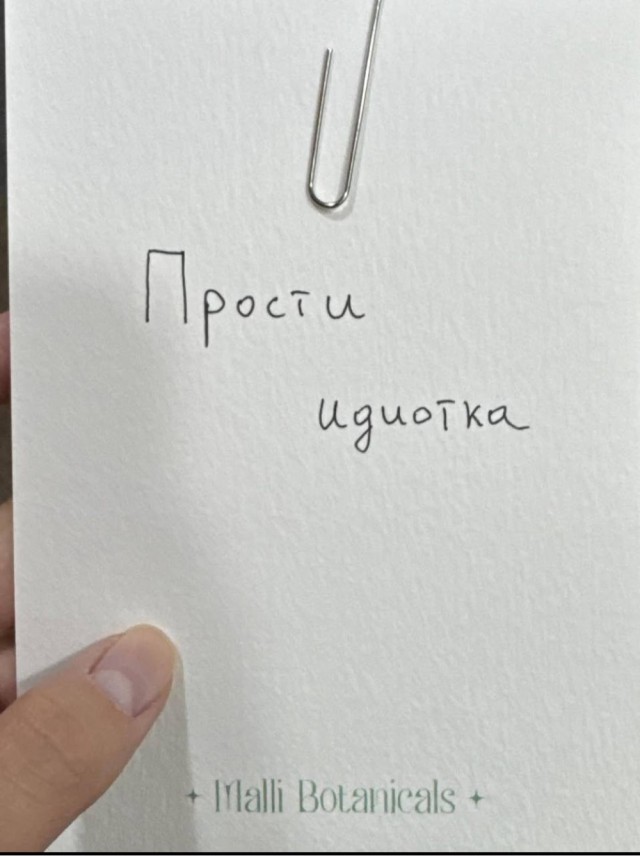 Прости
идиотка
✦ Malli Botanicals ✦